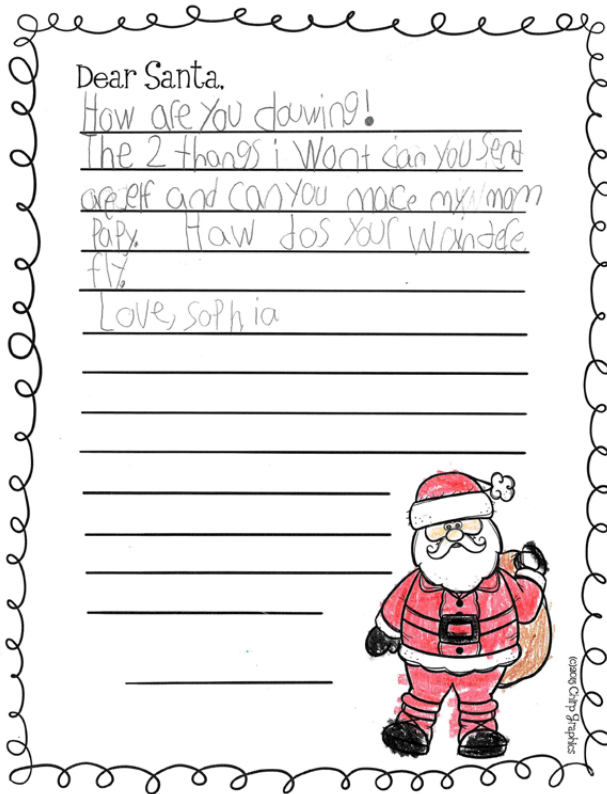 Dear Santa,
How are you douwing!
The 2 thangs i Wont can you sent
are elf and can you mace my mom
Papy. Haw dos your wraindere
fly.
Love, sophia
(c)2015 Chirp Graphics